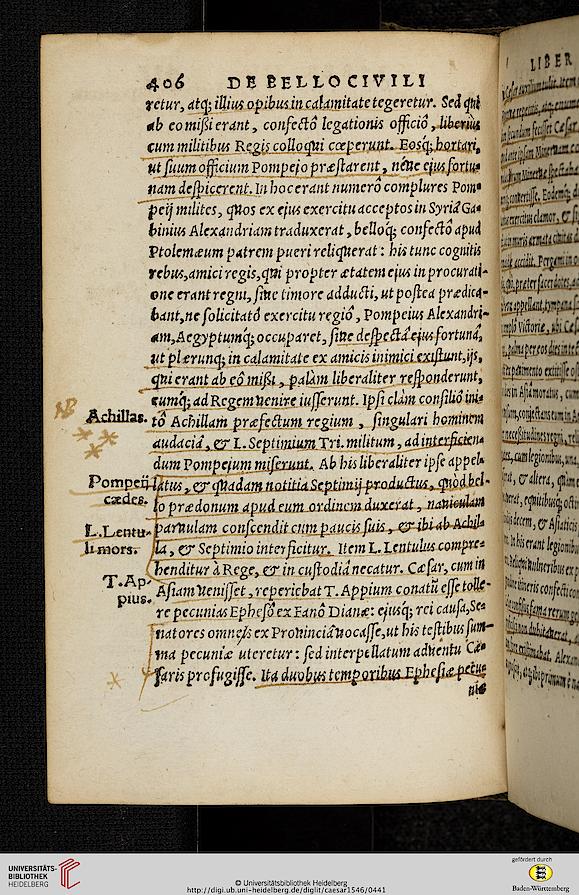 406 DE BELLO CIVILI
retur, atq; illius opibus in calamitate tegeretur. Sed qui
ab eo mißi erant, confectô legationis officiô, liberius
cum militibus Regis colloqui cœperunt. Eosq; hortari,
ut suum officium Pompejo præstarent, néve ejus fortu-
nam despicerent. In hoc erant numerô complures Pom-
peij milites, quos ex ejus exercitu acceptos in Syriâ Ga-
binius Alexandriam traduxerat, bellóq; confectô apud
Ptolemæum patrem pueri reliquerat: his tunc cognitis
rebus, amici regis, qui propter ætatem ejus in procurati-
one erant regni, sive timore adducti, ut postea prædica-
bant, ne solicitatô exercitu regiô, Pompeius Alexandri-
am, Aegyptumq; occuparet, sive despectâ ejus fortunâ,
ut plærunq; in calamitate ex amicis inimici existunt, ijs,
qui erant ab eô mißi, palàm liberaliter responderunt,
eumq; ad Regem venire iusserunt. Ipsi clàm consiliô ini-
NB
Achillas.
tô Achillam præfectum regium, singulari hominem
audaciâ, & L. Septimium Tri. militum, ad interficien-
dum Pompejum miserunt. Ab his liberaliter ipse appel-
Pompeij
latus, & quadam notitia Septimij productus, quòd bel-
cædes.
lo prædonum apud eum ordinem duxerat, naviculam
parvulam conscendit cum paucis suis, & ibi ab Achil-
L. Lentu-
li mors.
la, & Septimio interficitur. Item L. Lentulus compre-
henditur à Rege, & in custodiâ necatur. Cæsar, cum in
T. Ap-
pius.
Asiam venisset, reperiebat T. Appium conatû esse tolle-
re pecunias Ephesô ex Fanô Dianæ: ejusq; rei causa, Se-
natores omneîs ex Provinciâ vocasse, ut his testibus sum-
ma pecuniæ uteretur: sed interpellatum adventu Cæ-
saris profugisse. Ita duobus temporibus Ephesiæ pecu-
niæ
LIBER
UNIVERSITÄTS-
BIBLIOTHEK
HEIDELBERG
© Universitätsbibliothek Heidelberg
http://digi.ub.uni-heidelberg.de/diglit/caesar1546/0441
gefördert durch
Baden-Württemberg